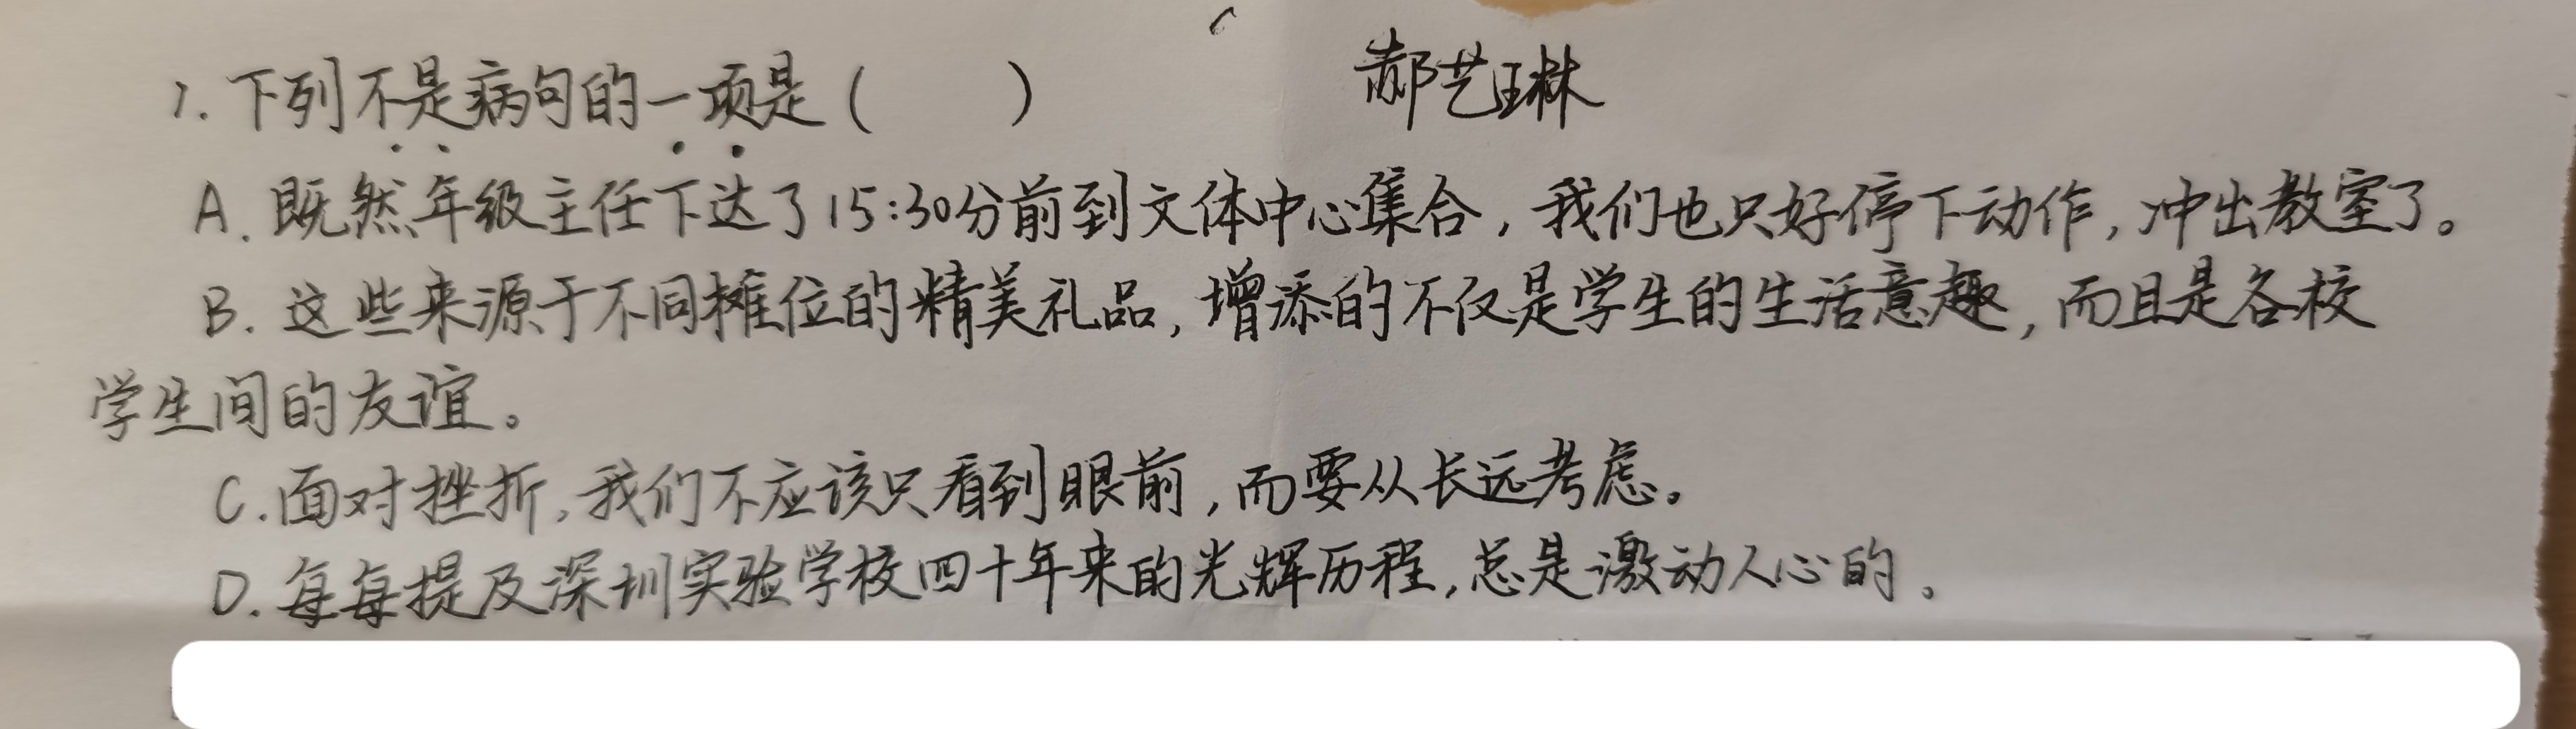 1.下列不是病句的一项是(　　) 郝艺琳
A.既然年级主任下达了15:30分前到文体中心集合,我们也只好停下动作,冲出教室了。
B.这些来源于不同摊位的精美礼品,增添的不仅是学生的生活意趣,而且是各校
学生间的友谊。
C.面对挫折,我们不应该只看到眼前,而要从长远考虑。
D.每每提及深圳实验学校四十年来的光辉历程,总是激动人心的。